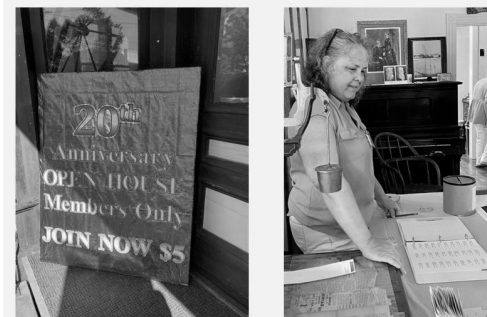 20th
Anniversary
OPEN HOUSE
Members Only
JOIN NOW $5